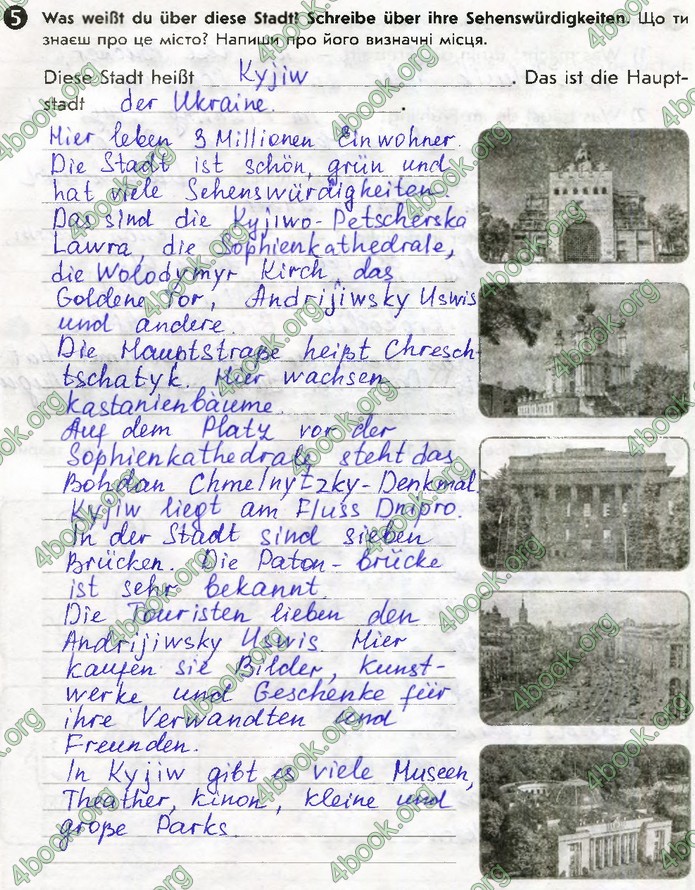 5 Was weißt du über diese Stadt? Schreibe über ihre Sehenswürdigkeiten. Що ти
знаєш про це місто? Напиши про його визначні місця.
Diese Stadt heißt Kyjiw. Das ist die Haupt-
stadt der Ukraine.
Hier leben 3 Millionen Einwohner.
Die Stadt ist schön, grün und
hat viele Sehenswürdigkeiten
Das sind die Kyjiwo-Petscherska
Lawra, die Sophienkathedrale,
die Wolodymyr Kirch, das
Goldene Tor, Andrijiwsky Uswis
und andere.
Die Hauptstraße heißt Chresch-
tschatyk. Hier wachsen
Kastanienbäume.
Auf dem Platz vor der
Sophienkathedrale steht das
Bohdan Chmelnytzky-Denkmal.
Kyjiw liegt am Fluss Dnipro.
In der Stadt sind sieben
Brücken. Die Paton-brücke
ist sehr bekannt.
Die Touristen lieben den
Andrijiwsky Uswis. Hier
kaufen sie Bilder, Kunst-
werke und Geschenke für
ihre Verwandten und
Freunden.
In Kyjiw gibt es viele Museen,
Theather, Kinon, kleine und
große Parks.
4book.org